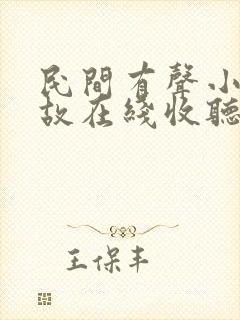 民間有聲小
故在綫收聽
王保丰